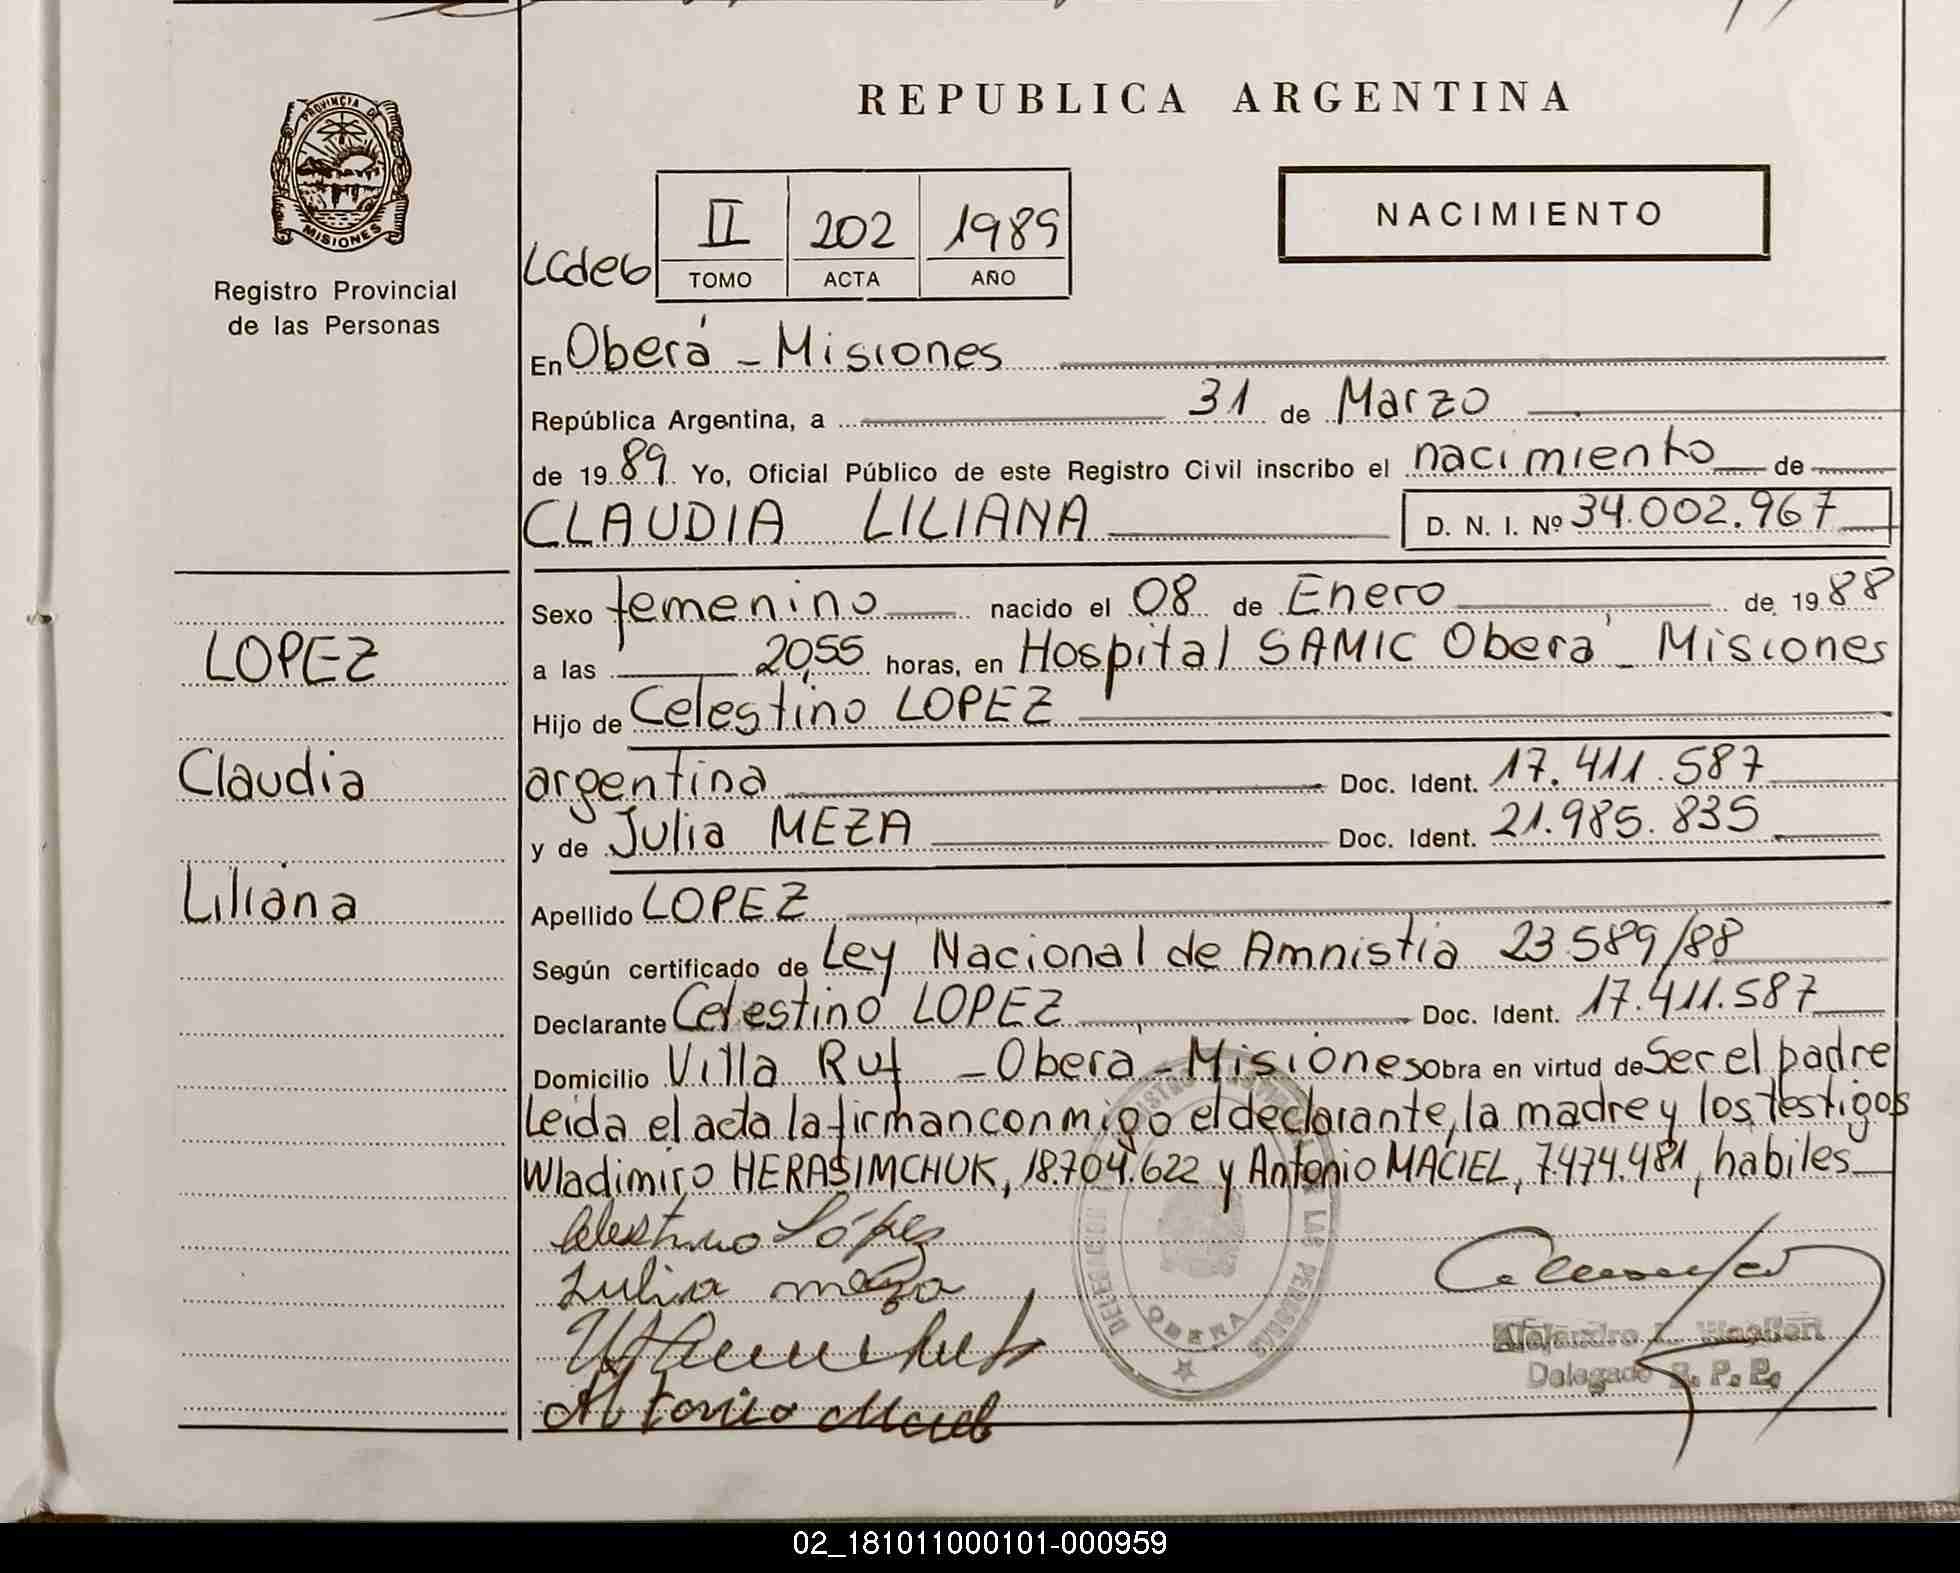 REPUBLICA ARGENTINA
PROVINCIA DE
MISIONES
Registro Provincial
de las Personas
NACIMIENTO
LCde6
II 202 1989
TOMO ACTA AÑO
En Oberá - Misiones
República Argentina, a 31 de Marzo
de 1989. Yo, Oficial Público de este Registro Civil inscribo el nacimiento de
CLAUDIA LILIANA D. N. I. Nº 34.002.967
Sexo femenino nacido el 08 de Enero de 1988
LOPEZ
a las 20,55 horas, en Hospital SAMIC Oberá - Misiones
Hijo de Celestino LOPEZ
Claudia
argentina Doc. Ident. 17.411.587
y de Julia MEZA Doc. Ident. 21.985.835
Liliana
Apellido LOPEZ
Según certificado de Ley Nacional de Amnistia 23.589/88
Declarante Celestino LOPEZ Doc. Ident. 17.411.587
Domicilio Villa Ruf - Oberá - Misiones obra en virtud de Ser el padre
Leida el acta la firman conmigo el declarante, la madre y los testigos
Wladimiro HERASIMCHUK, 18.704.622 y Antonio MACIEL, 7.474.481, habiles
Celestino López
Julia meza
Antonio Maciel
OBERA
Delegado R. P. P.
02_181011000101-000959